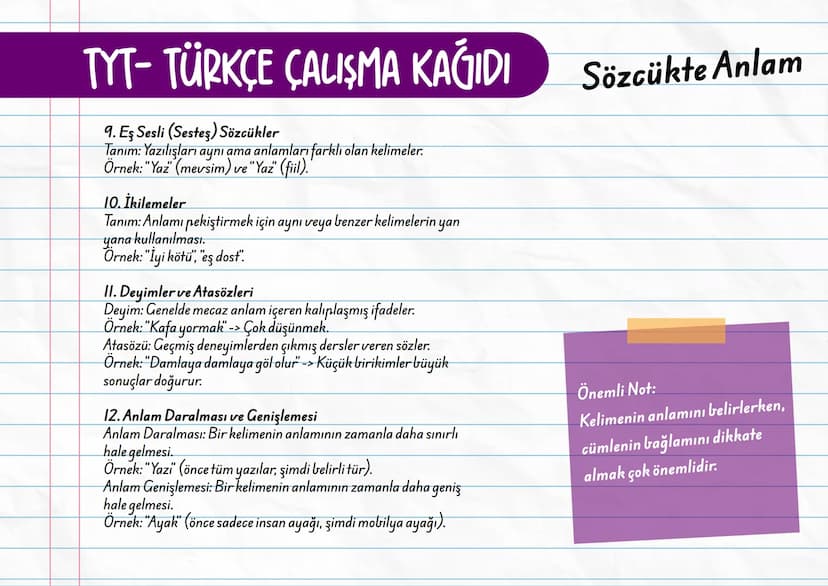 TYT- TÜRKÇE ÇALIŞMA KAĞIDI
Sözcükte Anlam
9. Eş Sesli (Sesteş) Sözcükler
Tanım: Yazılışları aynı ama anlamları farklı olan kelimeler.
Örnek: "Yaz" (mevsim) ve "Yaz" (fiil).
10. İkilemeler
Tanım: Anlamı pekiştirmek için aynı veya benzer kelimelerin yan
yana kullanılması.
Örnek: "İyi kötü", "eş dost".
11. Deyimler ve Atasözleri
Deyim: Genelde mecaz anlam içeren kalıplaşmış ifadeler.
Örnek: "Kafa yormak" -> Çok düşünmek.
Atasözü: Geçmiş deneyimlerden çıkmış dersler veren sözler.
Örnek: "Damlaya damlaya göl olur" -> Küçük birikimler büyük
sonuçlar doğurur.
12. Anlam Daralması ve Genişlemesi
Anlam Daralması: Bir kelimenin anlamının zamanla daha sınırlı
hale gelmesi.
Örnek: "Yazı" (önce tüm yazılar, şimdi belirli tür).
Anlam Genişlemesi: Bir kelimenin anlamının zamanla daha geniş
hale gelmesi.
Örnek: "Ayak" (önce sadece insan ayağı, şimdi mobilya ayağı).
Önemli Not:
Kelimenin anlamını belirlerken,
cümlenin bağlamını dikkate
almak çok önemlidir.